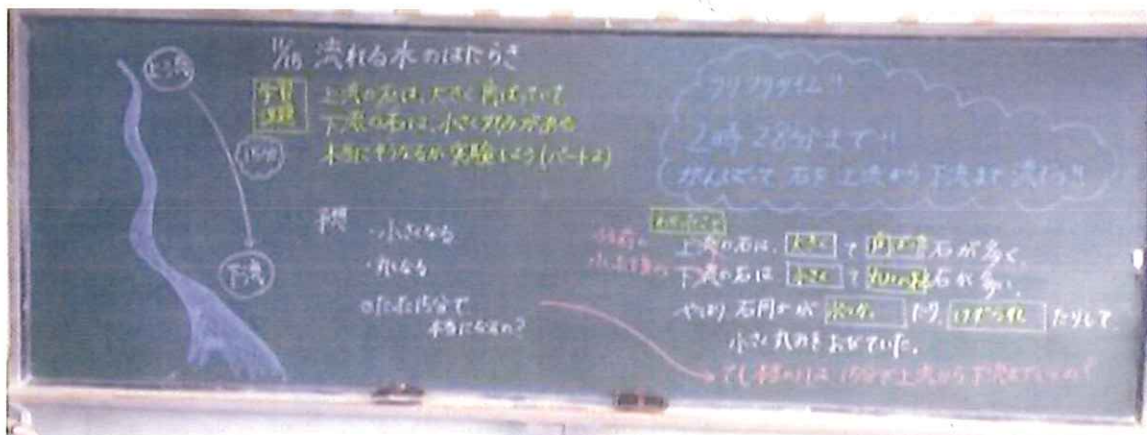 11/15 流れる水のはたらき
上流
15分
下流
学習
課題
上流の石は、大きく角ばっていて
下流の石には、小さく丸みがある
本当にそうなるか実験しよう(パート2)
フリフリタイム!!
2時28分まで!!
がんばって石を上流から下流まで流そう!!
予想
・小さくなる
・丸くなる
◎たった15分で
本当になるの?
わかったこと
上流の石は、大きくて角ばった石が多く、
下流の石は小さくて石が多い。
やっぱり石同士がぶつかったり、けずられたりして
小さく丸みをおびていた。
15分で上流から下流まで